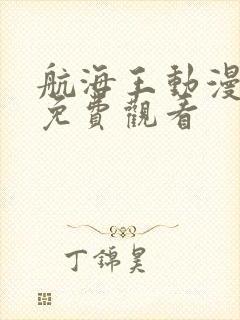 航海王動漫
免費觀看
丁錦昊